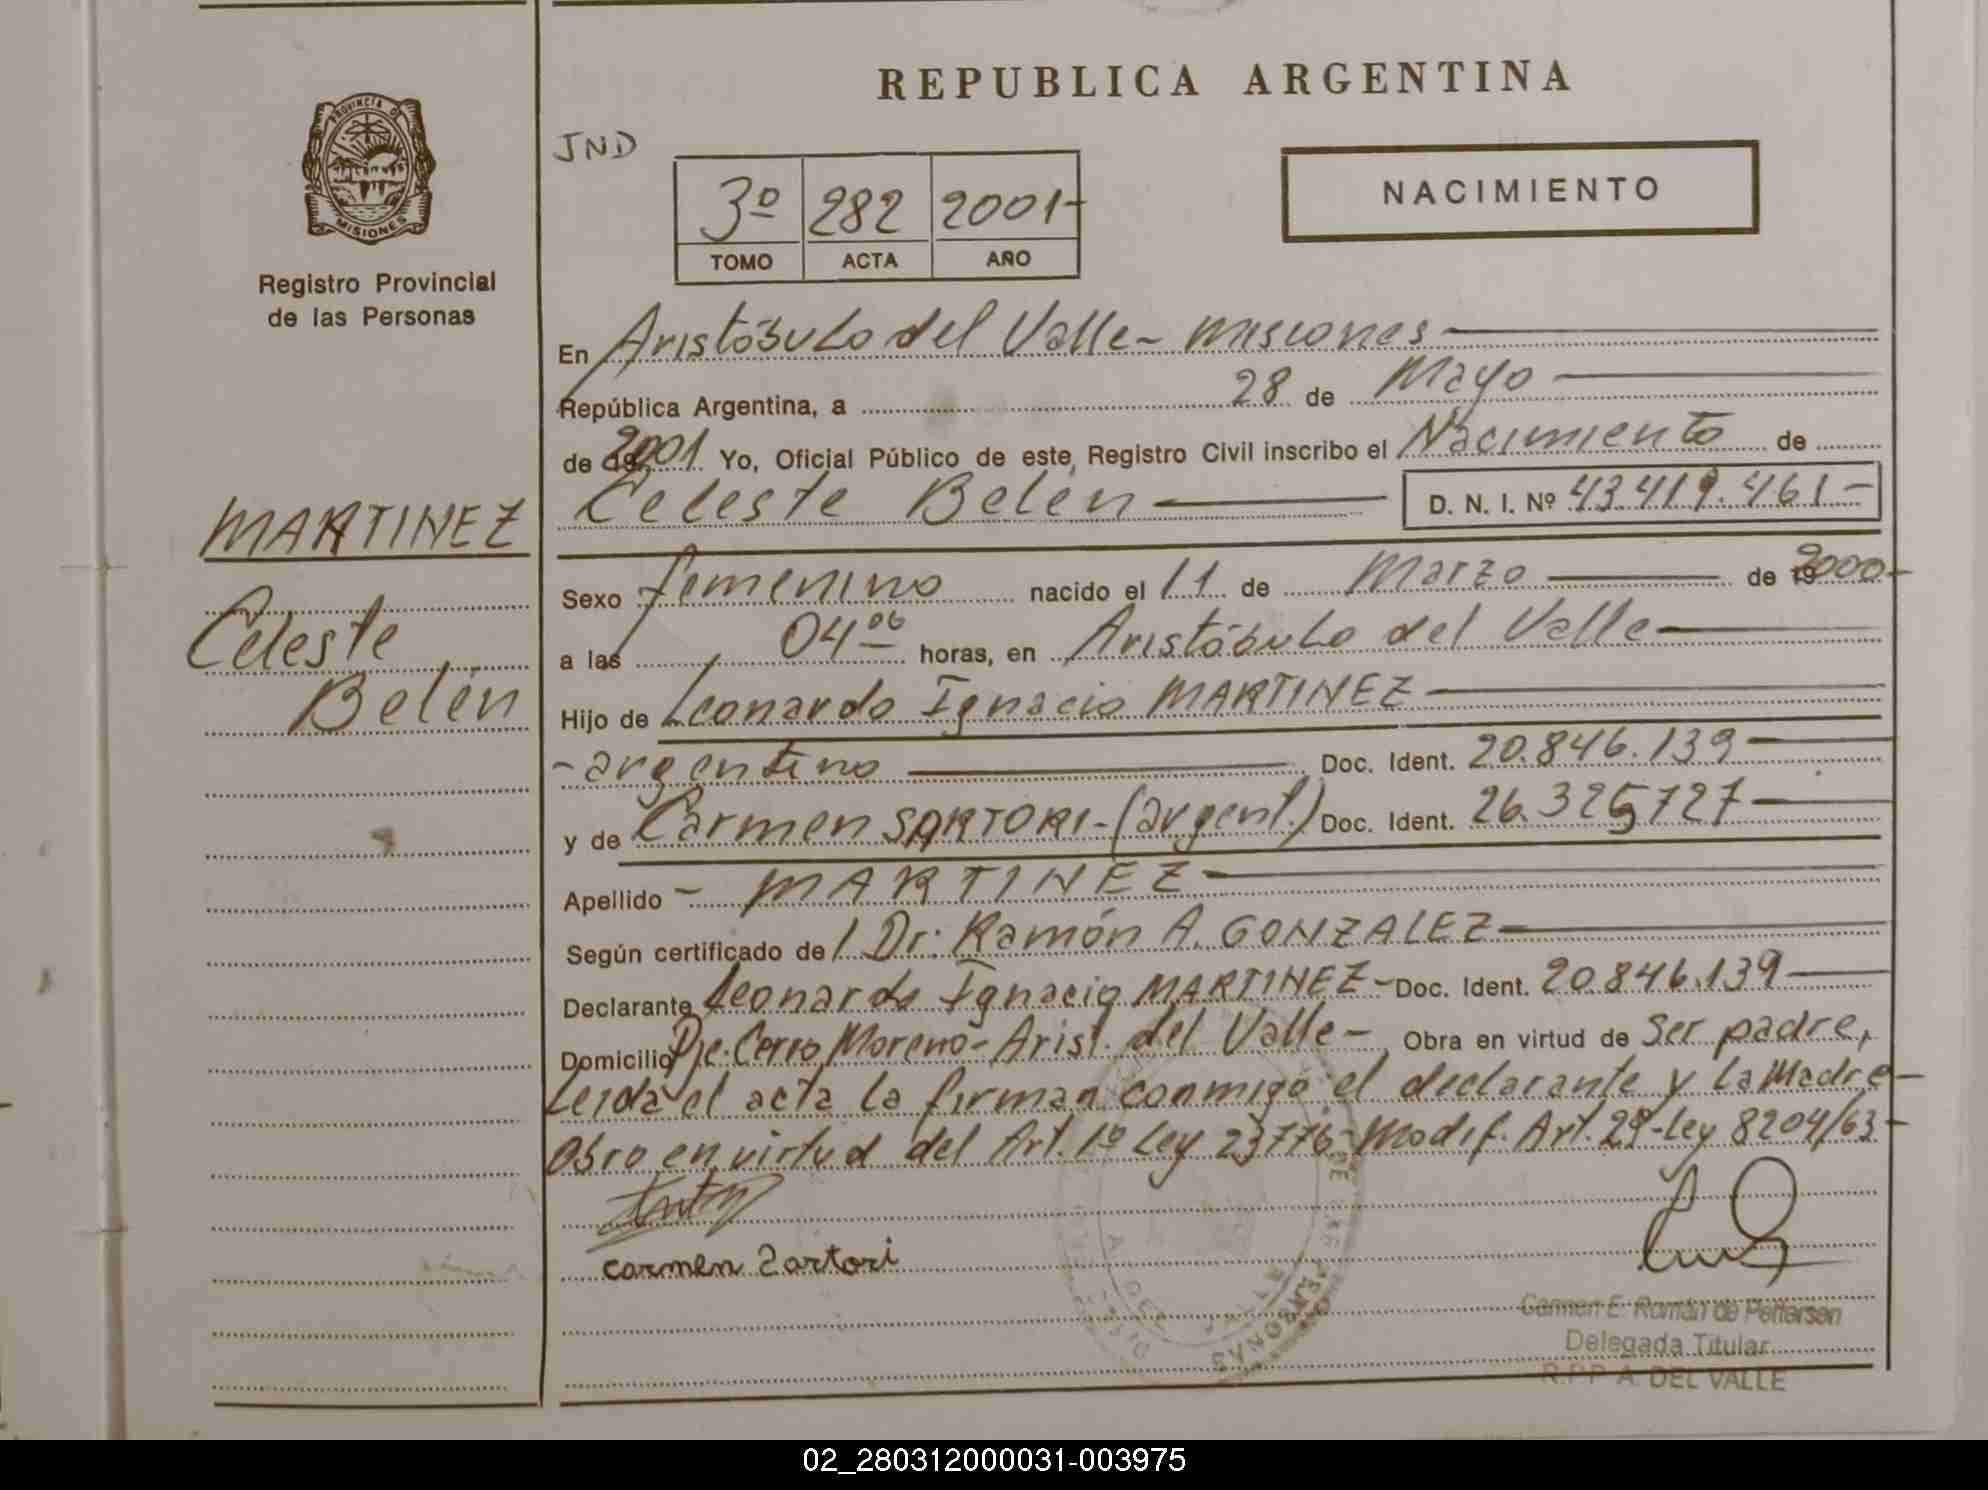 REPUBLICA ARGENTINA
PROVINCIA D
MISIONES
Registro Provincial
de las Personas
JND
3º 282 2001-
TOMO ACTA AÑO
NACIMIENTO
En Aristóbulo del Valle - Misiones
República Argentina, a 28 de Mayo
de 2001 Yo, Oficial Público de este Registro Civil inscribo el Nacimiento de
Celeste Belén D. N. I. Nº 43.419.461-
MARTINEZ
Celeste
Belén
Sexo femenino nacido el 11 de Marzo de 2000-
a las 04 06 horas, en Aristóbulo del Valle
Hijo de Leonardo Ignacio MARTINEZ
-argentino Doc. Ident. 20.846.139
y de Carmen SARTORI-(argent.) Doc. Ident. 26.325727
Apellido - MARTINEZ
Según certificado de Dr: Ramón A. GONZALEZ
Declarante Leonardo Ignacio MARTINEZ - Doc. Ident. 20.846.139
Domicilio Pje. Cerro Moreno - Arist. del Valle - Obra en virtud de Ser padre,
Leída el acta la firman conmigo el declarante y la Madre-
Obro en virtud del Art. 1º Ley 23776-Modif. Art. 29-Ley 8204/63-
carmen Sartori
Carmen E. Román de Pettersen
Delegada Titular
R.P.P. A. DEL VALLE
02_280312000031-003975